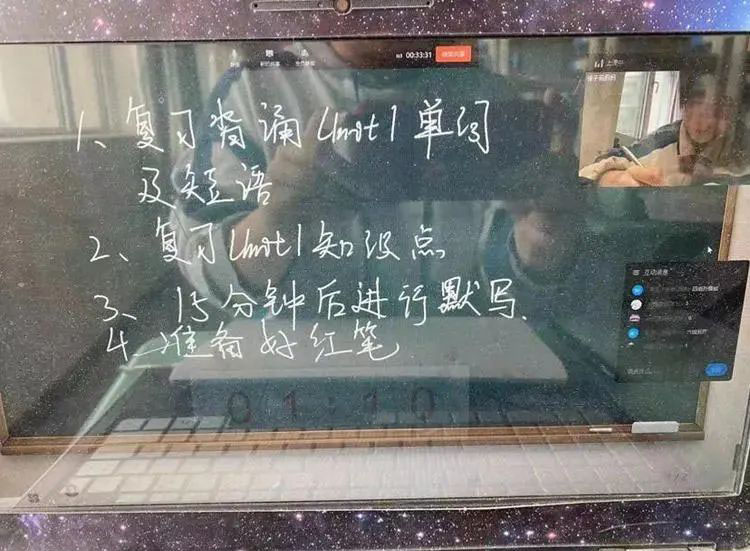 00:33:31
结束共享
1、复习背诵Unit1单词
及短语
2、复习Unit1知识点
3、15分钟后进行默写.
4、准备好红笔
01:10
互动消息
说点什么...